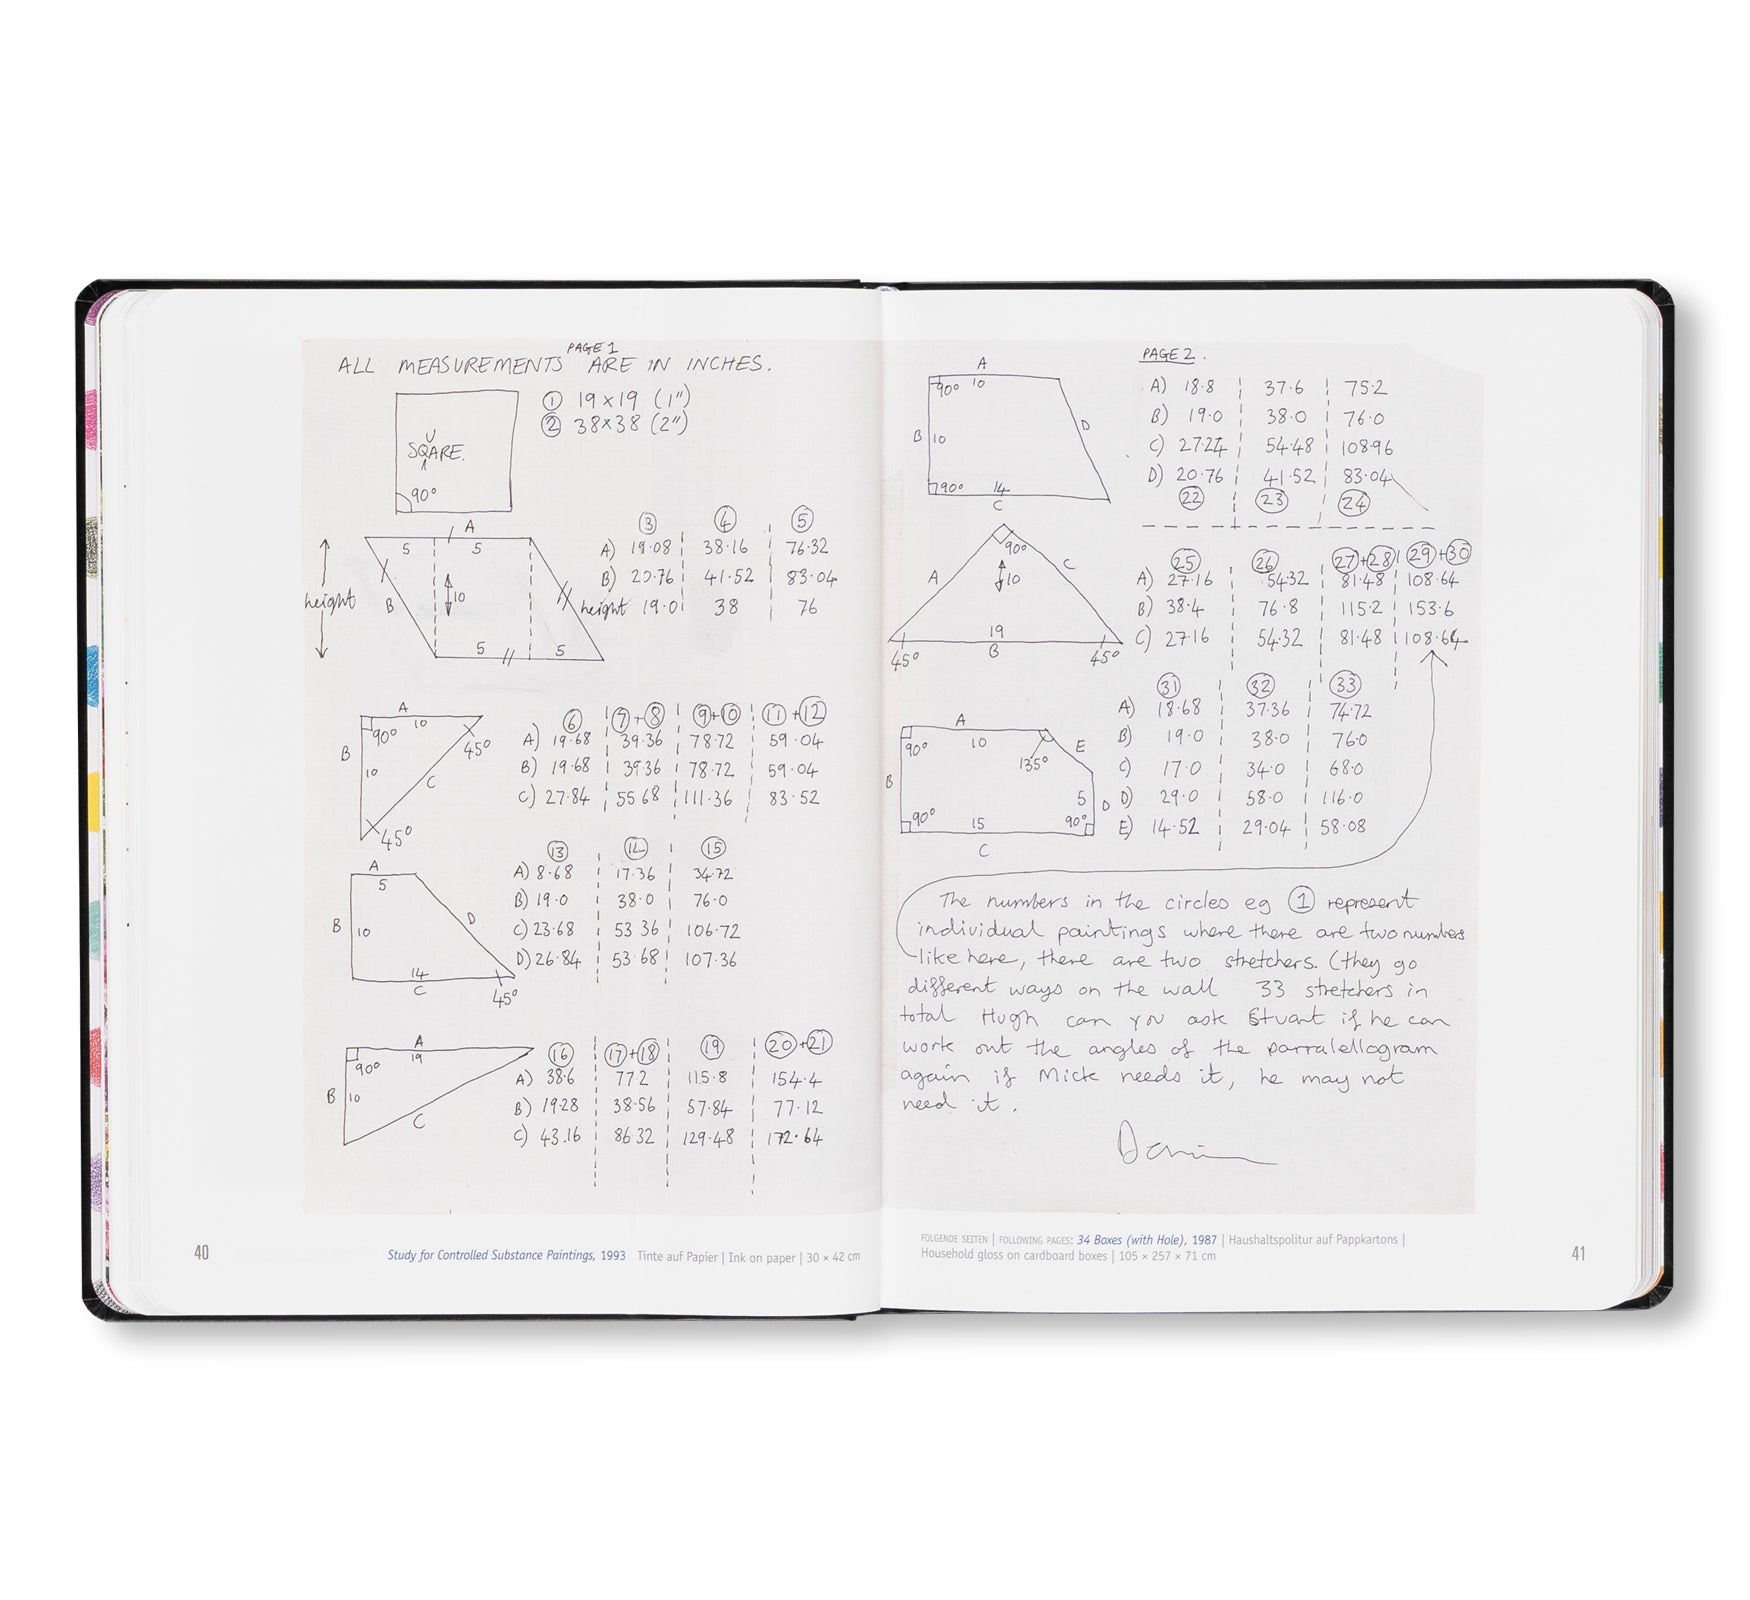 PAGE 1
ALL MEASUREMENTS ARE IN INCHES.
① 19×19 (1")
② 38×38 (2")
U
SQARE.
90°
A
5 5
height
B
10
5 5
③ ④ ⑤
A) 19·08 38·16 76·32
B) 20·76 41·52 83·04
height 19·0 38 76
A
10
90°
45°
B
10
C
45°
⑥ ⑦+⑧ ⑨+⑩ ⑪+⑫
A) 19·68 39·36 78·72 59·04
B) 19·68 39·36 78·72 59·04
C) 27·84 55 68 111·36 83·52
A
5
B
10
D
14
C
45°
⑬ ⑭ ⑮
A) 8·68 17·36 34·72
B) 19·0 38·0 76·0
C) 23·68 53 36 106·72
D) 26·84 53·68 107·36
A
19
90°
B
10
C
⑯ ⑰+⑱ ⑲ ⑳+㉑
A) 38·6 77·2 115·8 154·4
B) 19·28 38·56 57·84 77·12
C) 43·16 86·32 129·48 172·64
40
Study for Controlled Substance Paintings, 1993 Tinte auf Papier | Ink on paper | 30 × 42 cm
PAGE 2.
A
90° 10
B 10
D
90° 14
C
A) 18·8 37·6 75·2
B) 19·0 38·0 76·0
C) 27·24 54·48 108·96
D) 20·76 41·52 83·04
㉒ ㉓ ㉔
90°
A
10
C
19
45° B 45°
㉕ ㉖ ㉗+㉘ ㉙+㉚
A) 27·16 54·32 81·48 108·64
B) 38·4 76·8 115·2 153·6
C) 27·16 54·32 81·48 108·64
A
90° 10
135°
E
B
5 D
90° 15 90°
C
㉛ ㉜ ㉝
A) 18·68 37·36 74·72
B) 19·0 38·0 76·0
C) 17·0 34·0 68·0
D) 29·0 58·0 116·0
E) 14·52 29·04 58·08
The numbers in the circles eg ① represent
individual paintings where there are two numbers
like here, there are two stretchers. (they go
different ways on the wall 33 stretchers in
total Hugh can you ask Stuart if he can
work out the angles of the parralellogram
again if Mick needs it, he may not
need it.
FOLGENDE SEITEN | FOLLOWING PAGES: 34 Boxes (with Hole), 1987 | Haushaltspolitur auf Pappkartons |
Household gloss on cardboard boxes | 105 × 257 × 71 cm
41